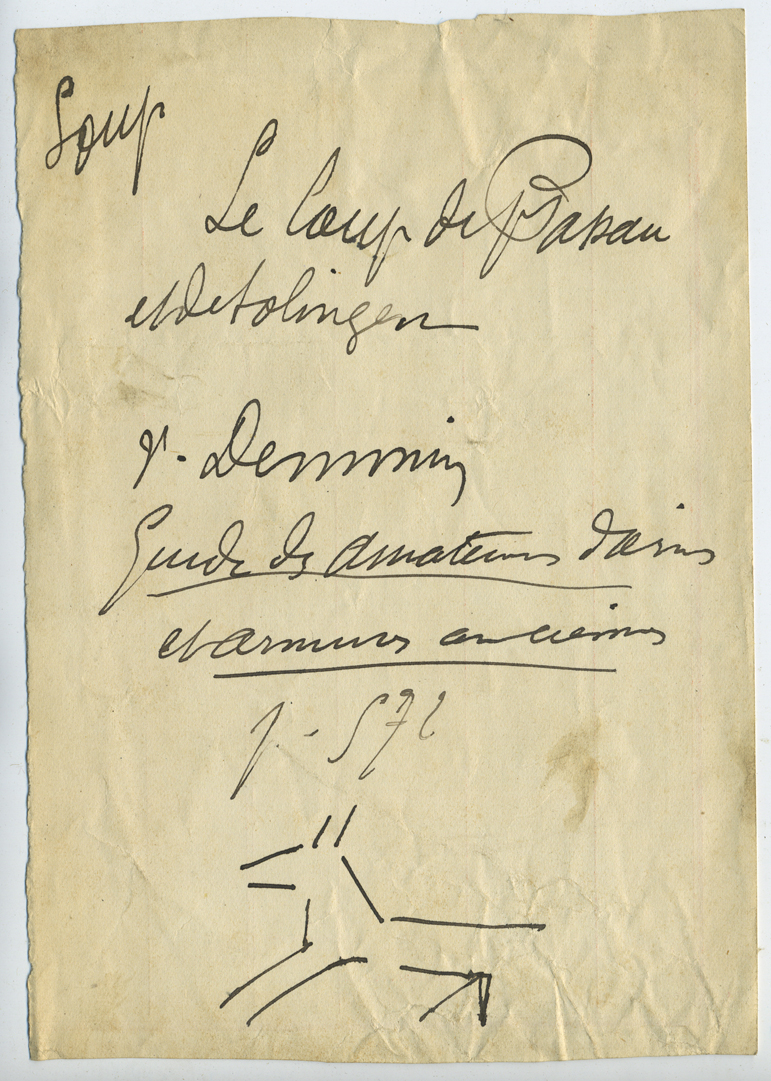 Loup
Le Loup de Passau
et de Solingen
v. Demmin
Guide des amateurs d'armes
et armures anciennes
p. 572